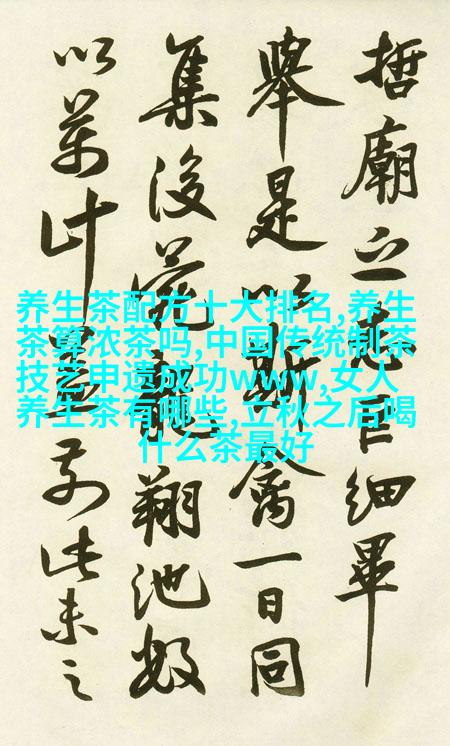 哲廟之志巨細畢
舉是以斯禽一日同
集後苑龍翔池殆
以萬計前此未之
养生茶配方十大排名,养生
茶算浓茶吗,中国传统制茶
技艺申遗成功www,女人
养生茶有哪些,立秋之后喝
什么茶最好